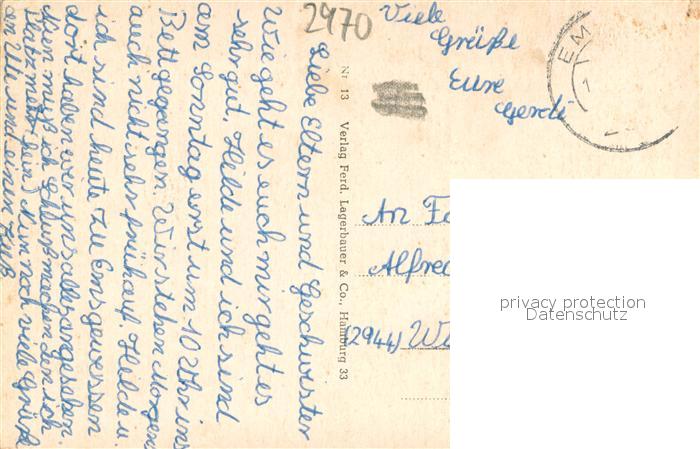 2970
Liebe Eltern und Geschwister
Wie geht es euch mir geht es
sehr gut. Hilde und ich sind
am Sonntag erst um 10 Uhr ins
Bett gegangen. Wir stehen Morgens
auch nicht sehr früh auf. Hilde u.
ich sind heute zu Ems gewesen
dort haben wir uns alles angesehen.
Nun muß ich Schluß machen den ich
Nun noch viele Grüße
an Ute und einen Kuß
Viele
Grüße
Eure
Gerdi
EM
Nr. 13 Verlag Ferd. Lagerbauer & Co., Hamburg 33
An Fa
Alfred
(2944) Wi
privacy protection
Datenschutz